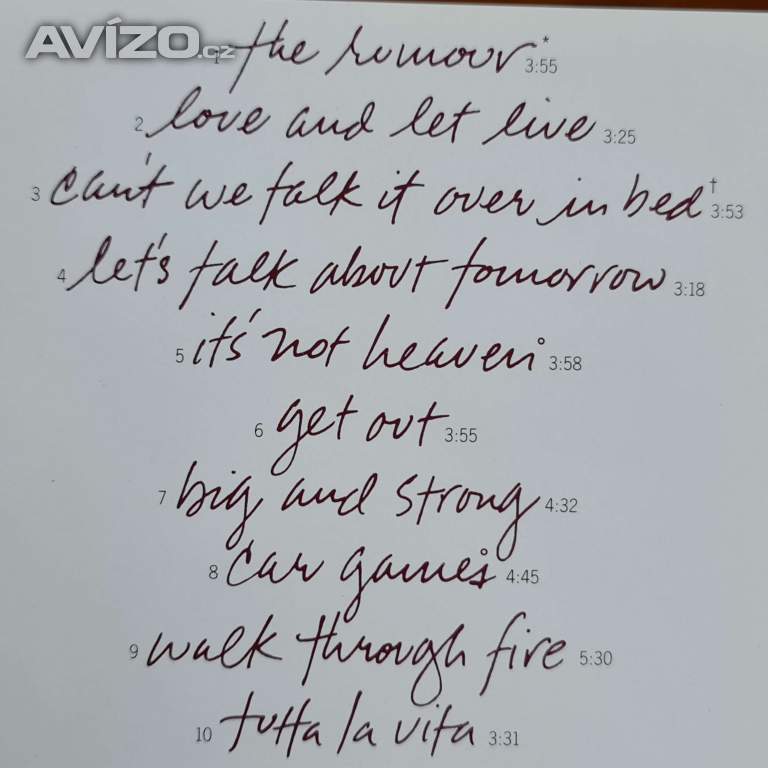 AVÍZO.cz
1 the rumour* 3:55
2 love and let live 3:25
3 can't we talk it over in bed† 3:53
4 let's talk about tomorrow 3:18
5 it's not heaven° 3:58
6 get out 3:55
7 big and strong 4:32
8 car games° 4:45
9 walk through fire 5:30
10 tutta la vita 3:31